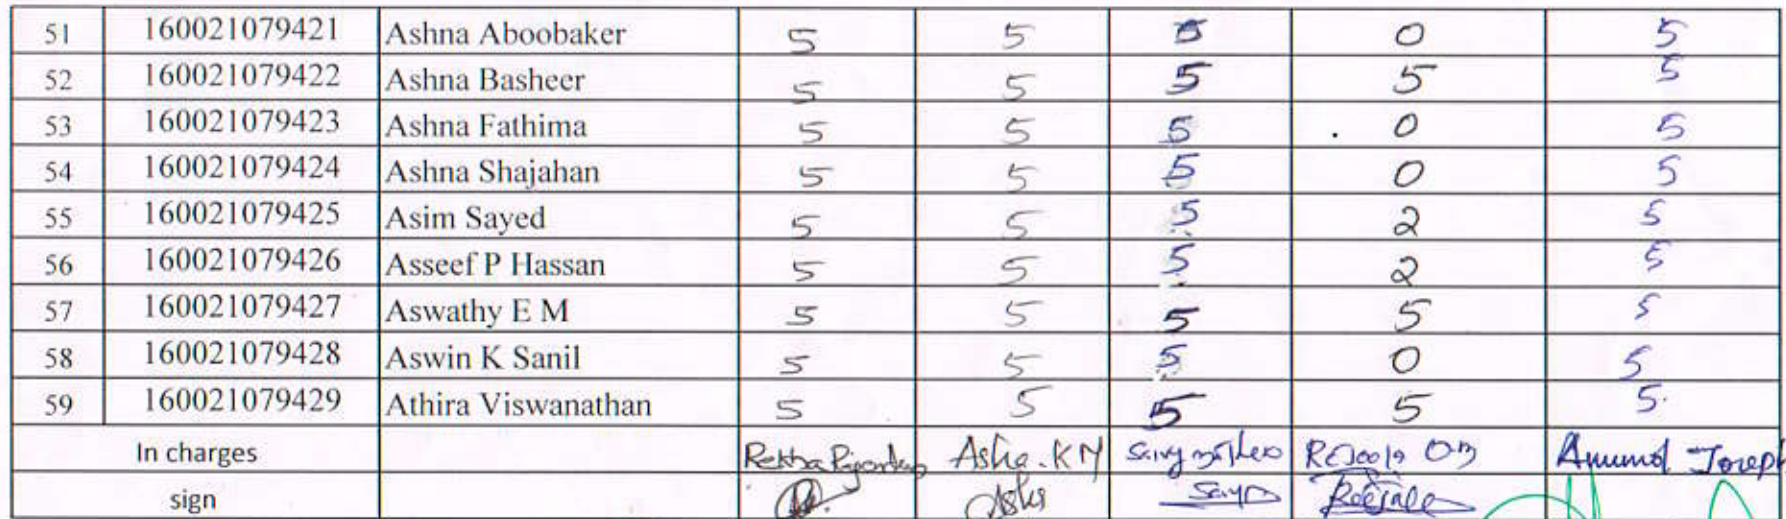 51 160021079421 Ashna Aboobaker 5 5 5 0 5
52 160021079422 Ashna Basheer 5 5 5 5 5
53 160021079423 Ashna Fathima 5 5 5 0 5
54 160021079424 Ashna Shajahan 5 5 5 0 5
55 160021079425 Asim Sayed 5 5 5 2 5
56 160021079426 Asseef P Hassan 5 5 5 2 5
57 160021079427 Aswathy E M 5 5 5 5 5
58 160021079428 Aswin K Sanil 5 5 5 0 5
59 160021079429 Athira Viswanathan 5 5 5 5 5.
In charges Rekha Asha.KM Joseph
sign Asha